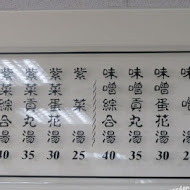 味噌湯
味噌蛋花湯 30
味噌貢丸湯 35
味噌綜合湯 40
紫菜湯 25
紫菜蛋花湯 30
紫菜貢丸湯 35
紫菜綜合湯 40